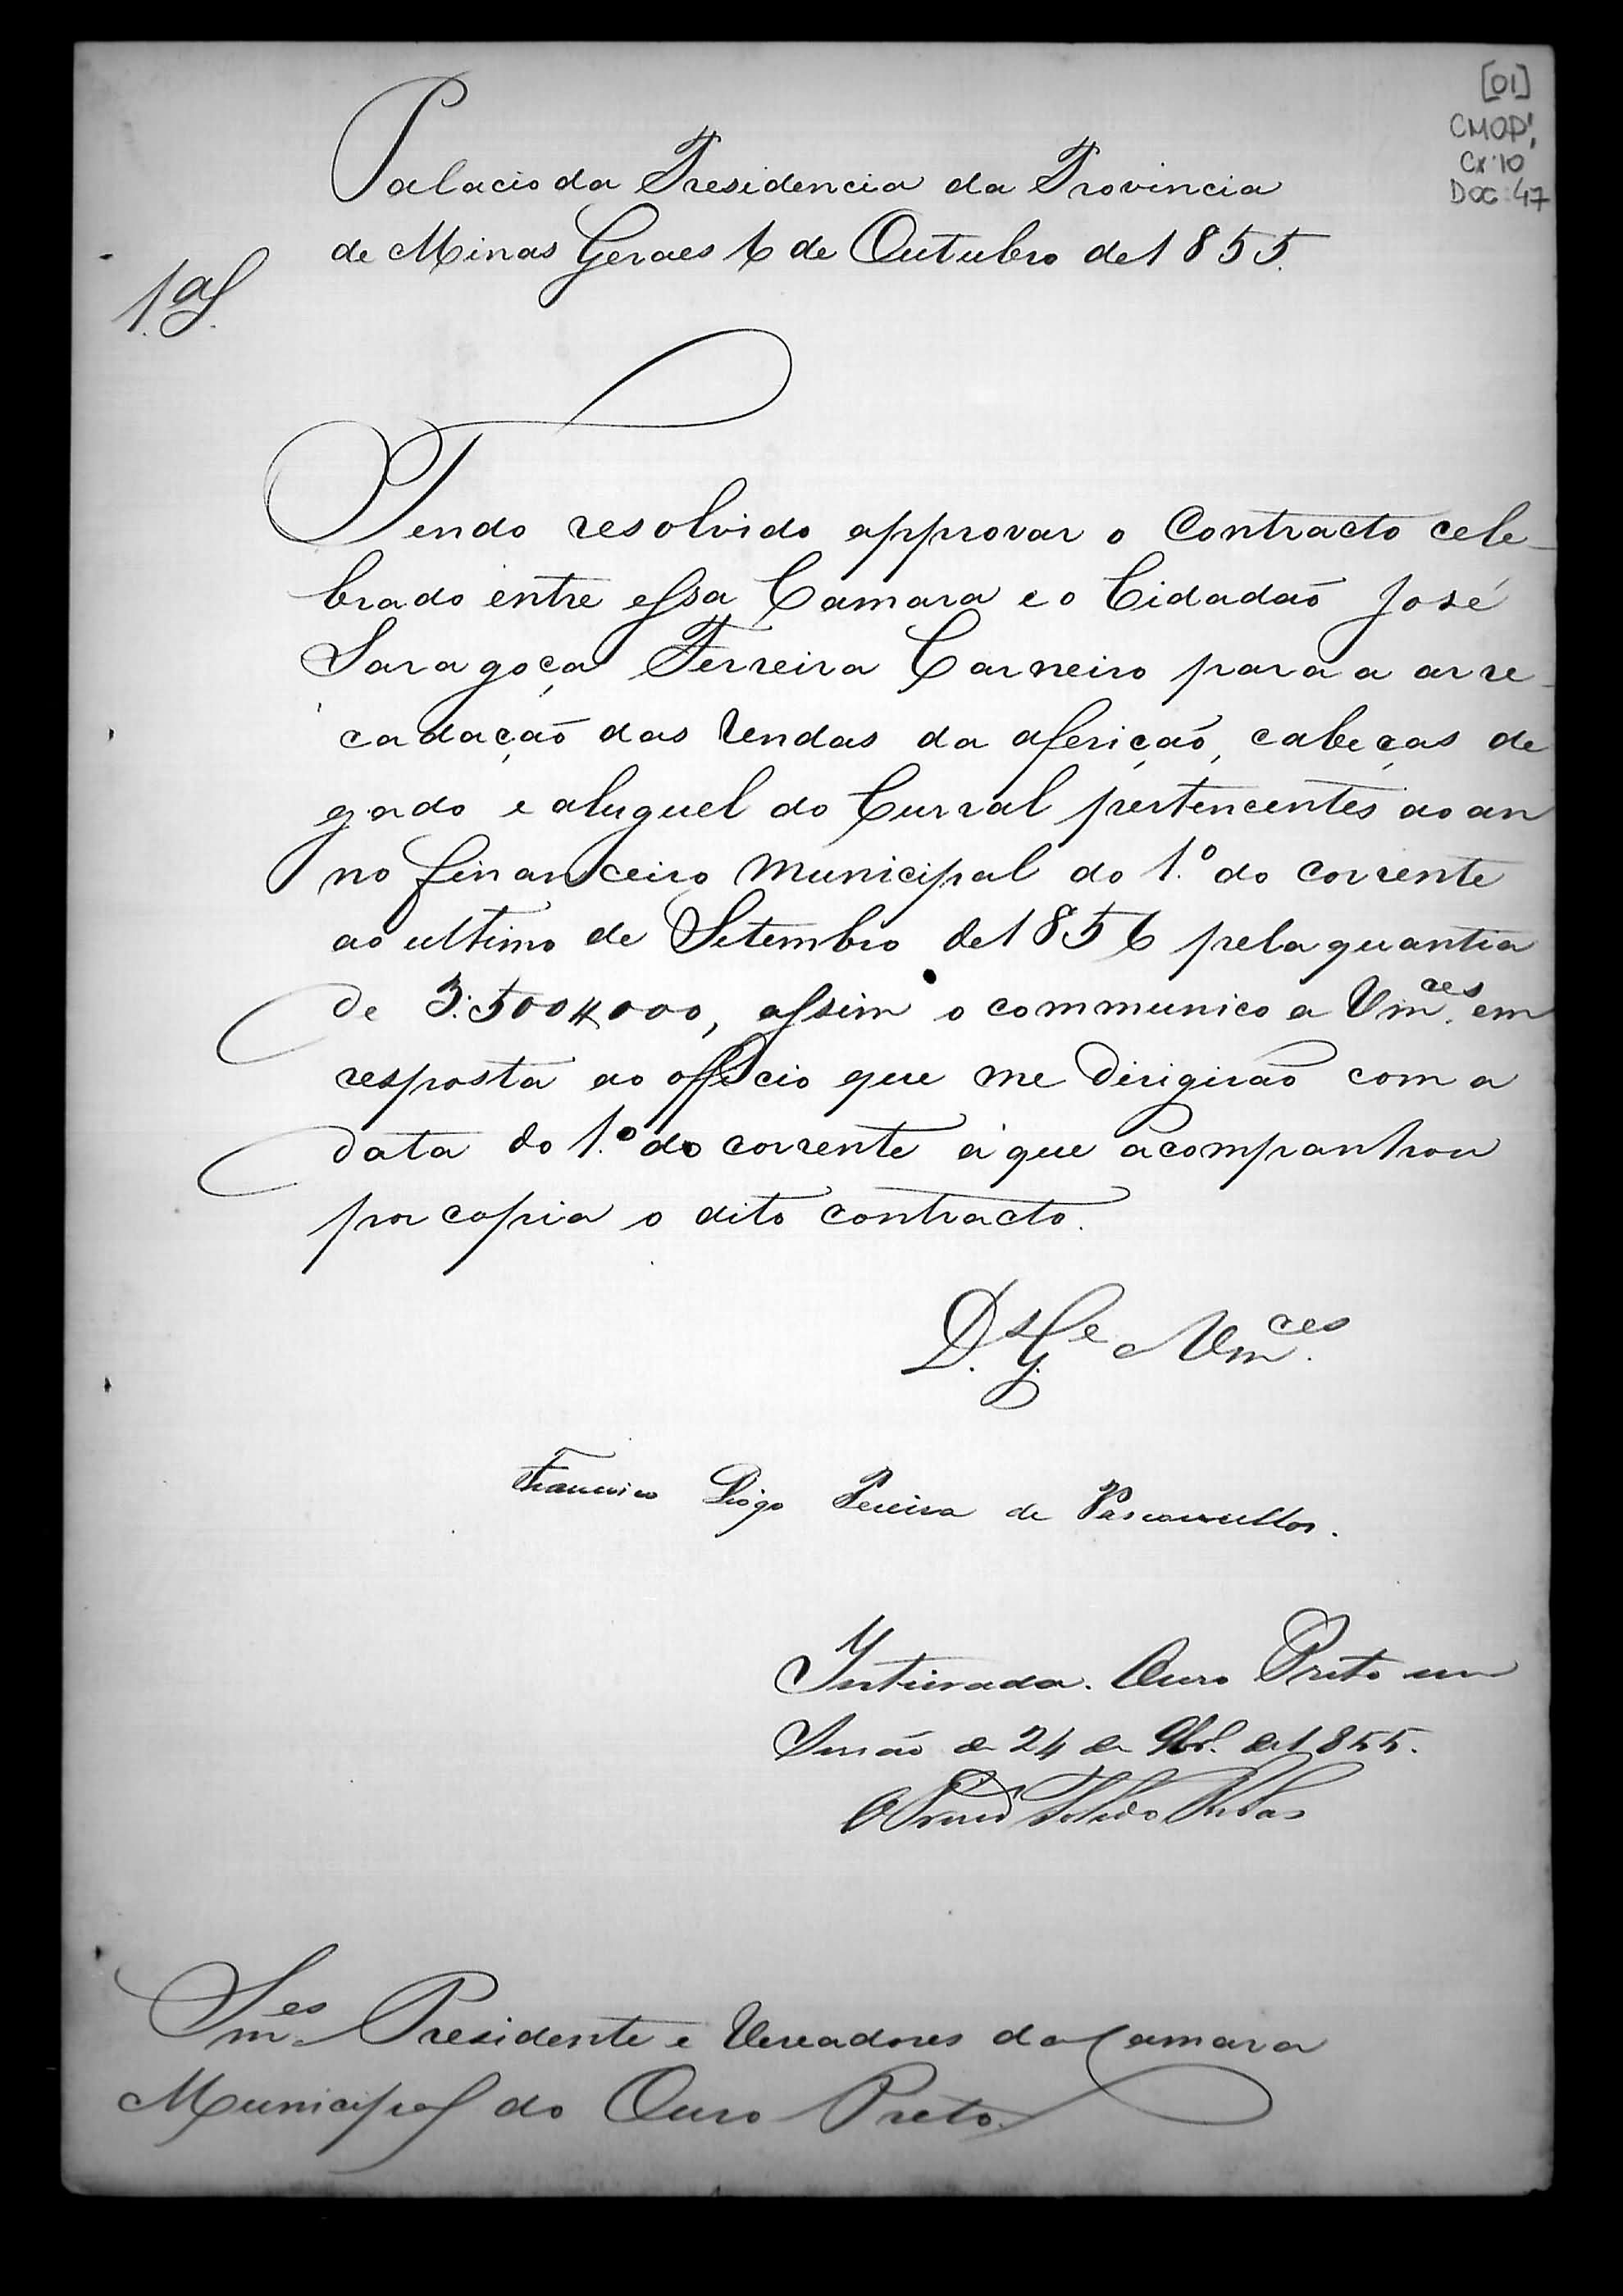 [01]
CMOP.
CX: 10
DOC: 47
Palacio da Presidencia da Provincia
de Minas Geraes 6 de Outubro de 1855.
1.ª S.
Tendo resolvido approvar o Contracto cele-
brado entre essa Camara e o Cidadaõ José
Saragoça Ferreira Carneiro para a arre-
cadaçaõ das Rendas da afericaõ, cabeças de
gado e aluguel do Curral pertencentes ao an
no financeiro Municipal do 1.º do corrente
ao ultimo de Setembro de 1856 pela quantia
de 3:500$000, assim o communico a Vm.ces em
resposta ao officio que me dirigiraõ com a
data do 1.º do corrente á que acompanhou
por copia o dito contracto.
D.s G.e a Vm.ces
Francisco Diogo Pereira de Vasconcellos.
Inteirada. Ouro Preto em
Sessaõ de 24 de 9br.º de 1855.
Snr.es Presidente e Vereadores da Camara
Municipal do Ouro Preto